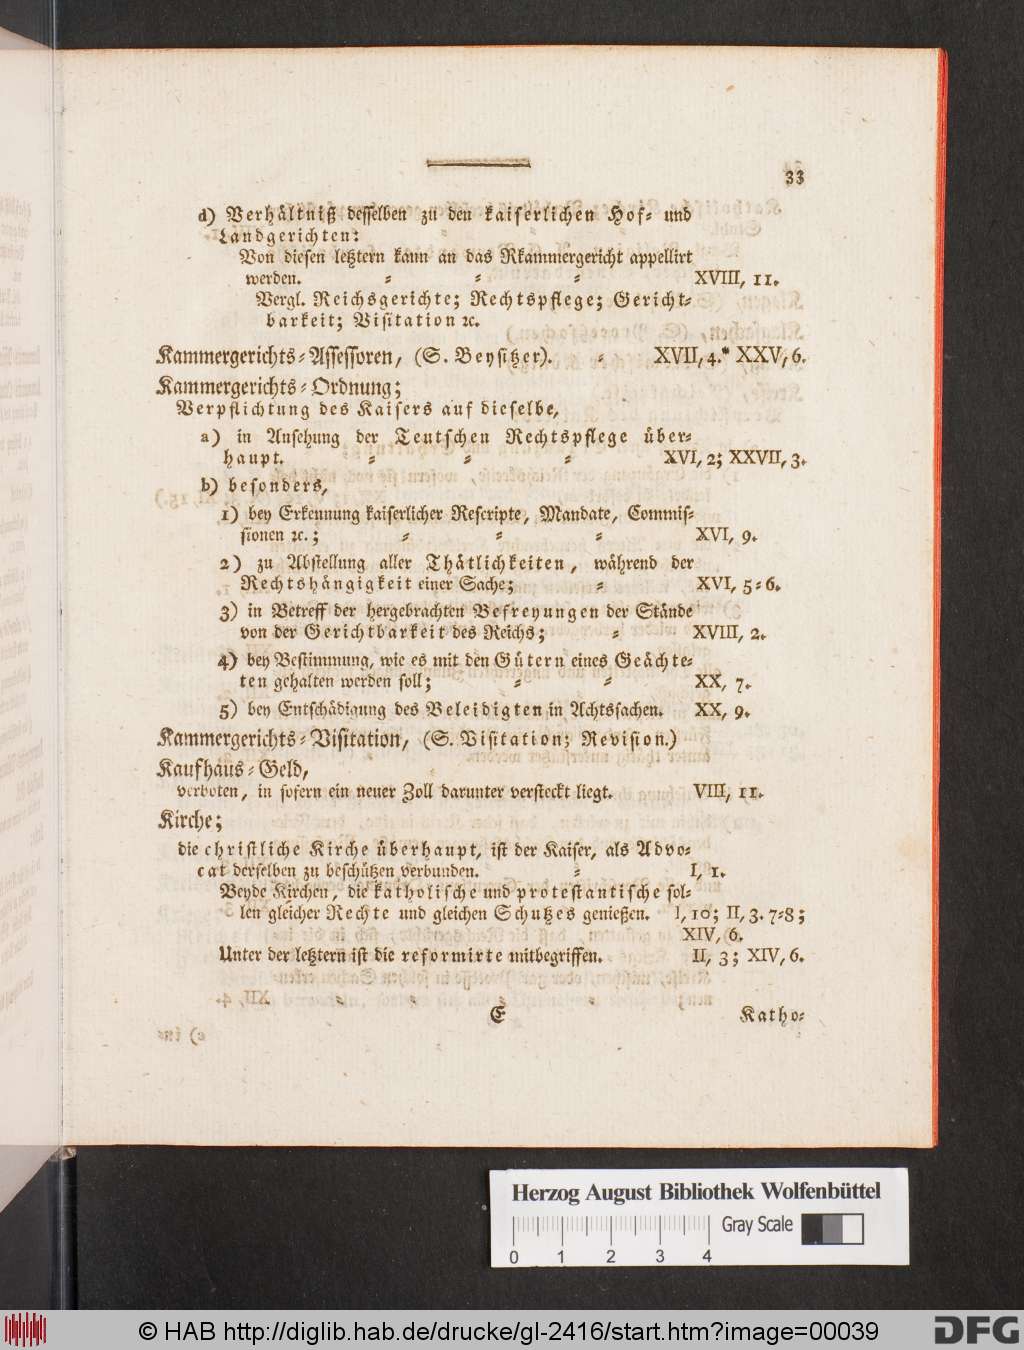 33
d) Verhältniß desselben zu den kaiserlichen Hof- und
Landgerichten:
Von diesen letztern kann an das Rkammergericht appellirt
werden. - - - XVIII, 11.
Vergl. Reichsgerichte; Rechtspflege; Gericht-
barkeit; Visitation ꝛc.
Kammergerichts-Assessoren, (S. Beysitzer). - XVII, 4.* XXV, 6.
Kammergerichts-Ordnung;
Verpflichtung des Kaisers auf dieselbe,
a) in Ansehung der Teutschen Rechtspflege über-
haupt. - - - XVI, 2; XXVII, 3.
b) besonders,
1) bey Erkennung kaiserlicher Rescripte, Mandate, Commis-
sionen ꝛc.; - - - XVI, 9.
2) zu Abstellung aller Thätlichkeiten, während der
Rechtshängigkeit einer Sache; - XVI, 5-6.
3) in Betreff der hergebrachten Befreyungen der Stände
von der Gerichtbarkeit des Reichs; - XVIII, 2.
4) bey Bestimmung, wie es mit den Gütern eines Geächte-
ten gehalten werden soll; - - XX, 7.
5) bey Entschädigung des Beleidigten in Achtssachen. XX, 9.
Kammergerichts-Visitation, (S. Visitation; Revision.)
Kaufhaus-Geld,
verboten, in sofern ein neuer Zoll darunter versteckt liegt. VIII, 11.
Kirche;
die christliche Kirche überhaupt, ist der Kaiser, als Advo-
cat derselben zu beschützen verbunden. - I, 1.
Beyde Kirchen, die katholische und protestantische sol-
len gleicher Rechte und gleichen Schutzes genießen. I, 10; II, 3. 7-8;
XIV, 6.
Unter der letztern ist die reformirte mitbegriffen. II, 3; XIV, 6.
E Katho-
Herzog August Bibliothek Wolfenbüttel
Gray Scale
0 1 2 3 4
© HAB http://diglib.hab.de/drucke/gl-2416/start.htm?image=00039
DFG